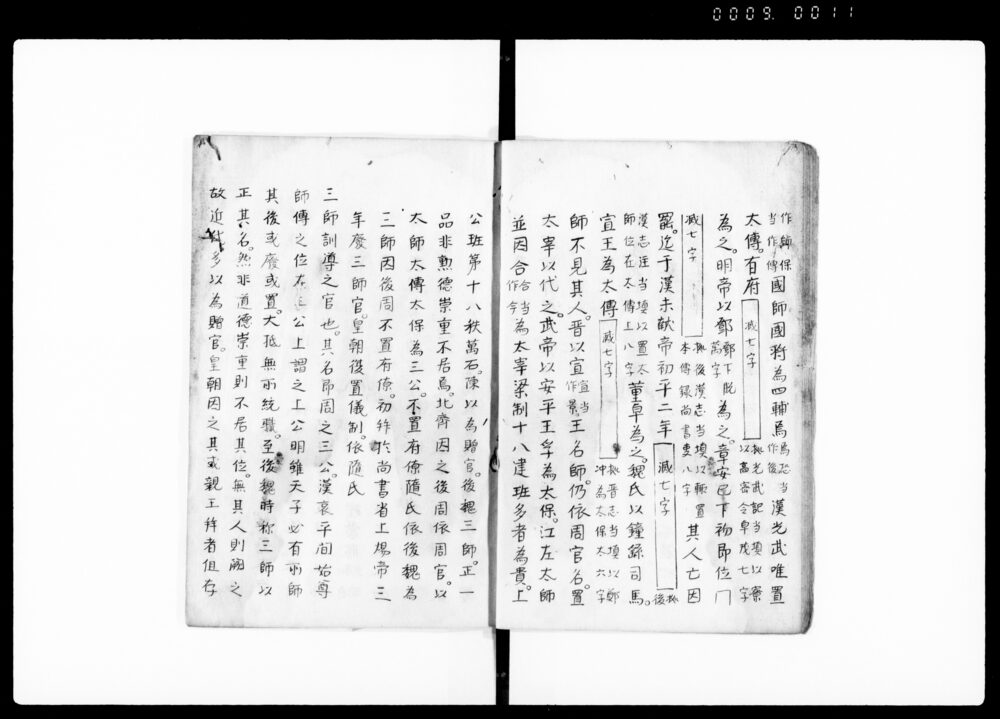 0009. 0011
作師保 当作傅 國師國將為四輔焉 焉恐当作後 漢光武唯置
太傅。有府 减七字 拠光武記当填以褒以高密令卓茂七字
為之。明帝以鄭 鄭下脱萬字 為之。章安已下初即位冂
减七字 拠後漢志当填以輒置本傅録尚書事八字 其人亡因
罷。迄于漢末献帝初平二年 减七字 拠後
漢志注当填以置太師位在太傅上八字 董卓為之。魏氏以鐘繇司馬。
宣王為太傅 减七字 拠晋志当填以鄭冲為太保太六字
師不見其人。晋以宣 宣当作景 王名師。仍依周官名。置
太宰以代之。武帝以安平王孚為太保。江左太師
並因合 合当作今 為太宰梁制十八建班多者為貴。上
公班第十八秩萬石。陳以為贈官。後魏三師。正一
品非勲德崇重不居焉。北齊因之後周依周官。以
太師太傅太保為三公。不置府僚隨氏依後魏為
三師因後周不置府僚。初拜於尚書省上煬帝三
年廢三師官。皇朝復置儀制。依隨氏
三師訓導之官也。其名即周之三公。漢哀平間始尊
師傅之位在三公上謂之上公明雖天子必有所師
其後或廢或置。大抵無所統職。至後魏時称三師以
正其名。然非道德崇重則不居其位。無其人則闕之
故近代多以為贈官。皇朝因之其或親王拜者但存